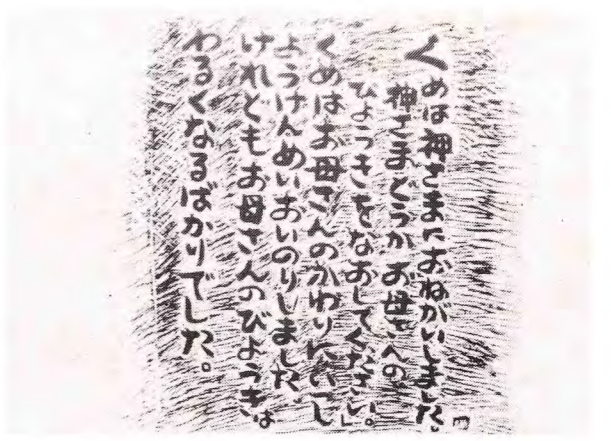 くめは神さまにおねがいしました。
神さまどうかお母さんの
びょうきをなおしてください」。
くめはお母さんのかわりにいっし
ょうけんめいおいのりしました、
けれどもお母さんのびょうきは
わるくなるばかりでした。